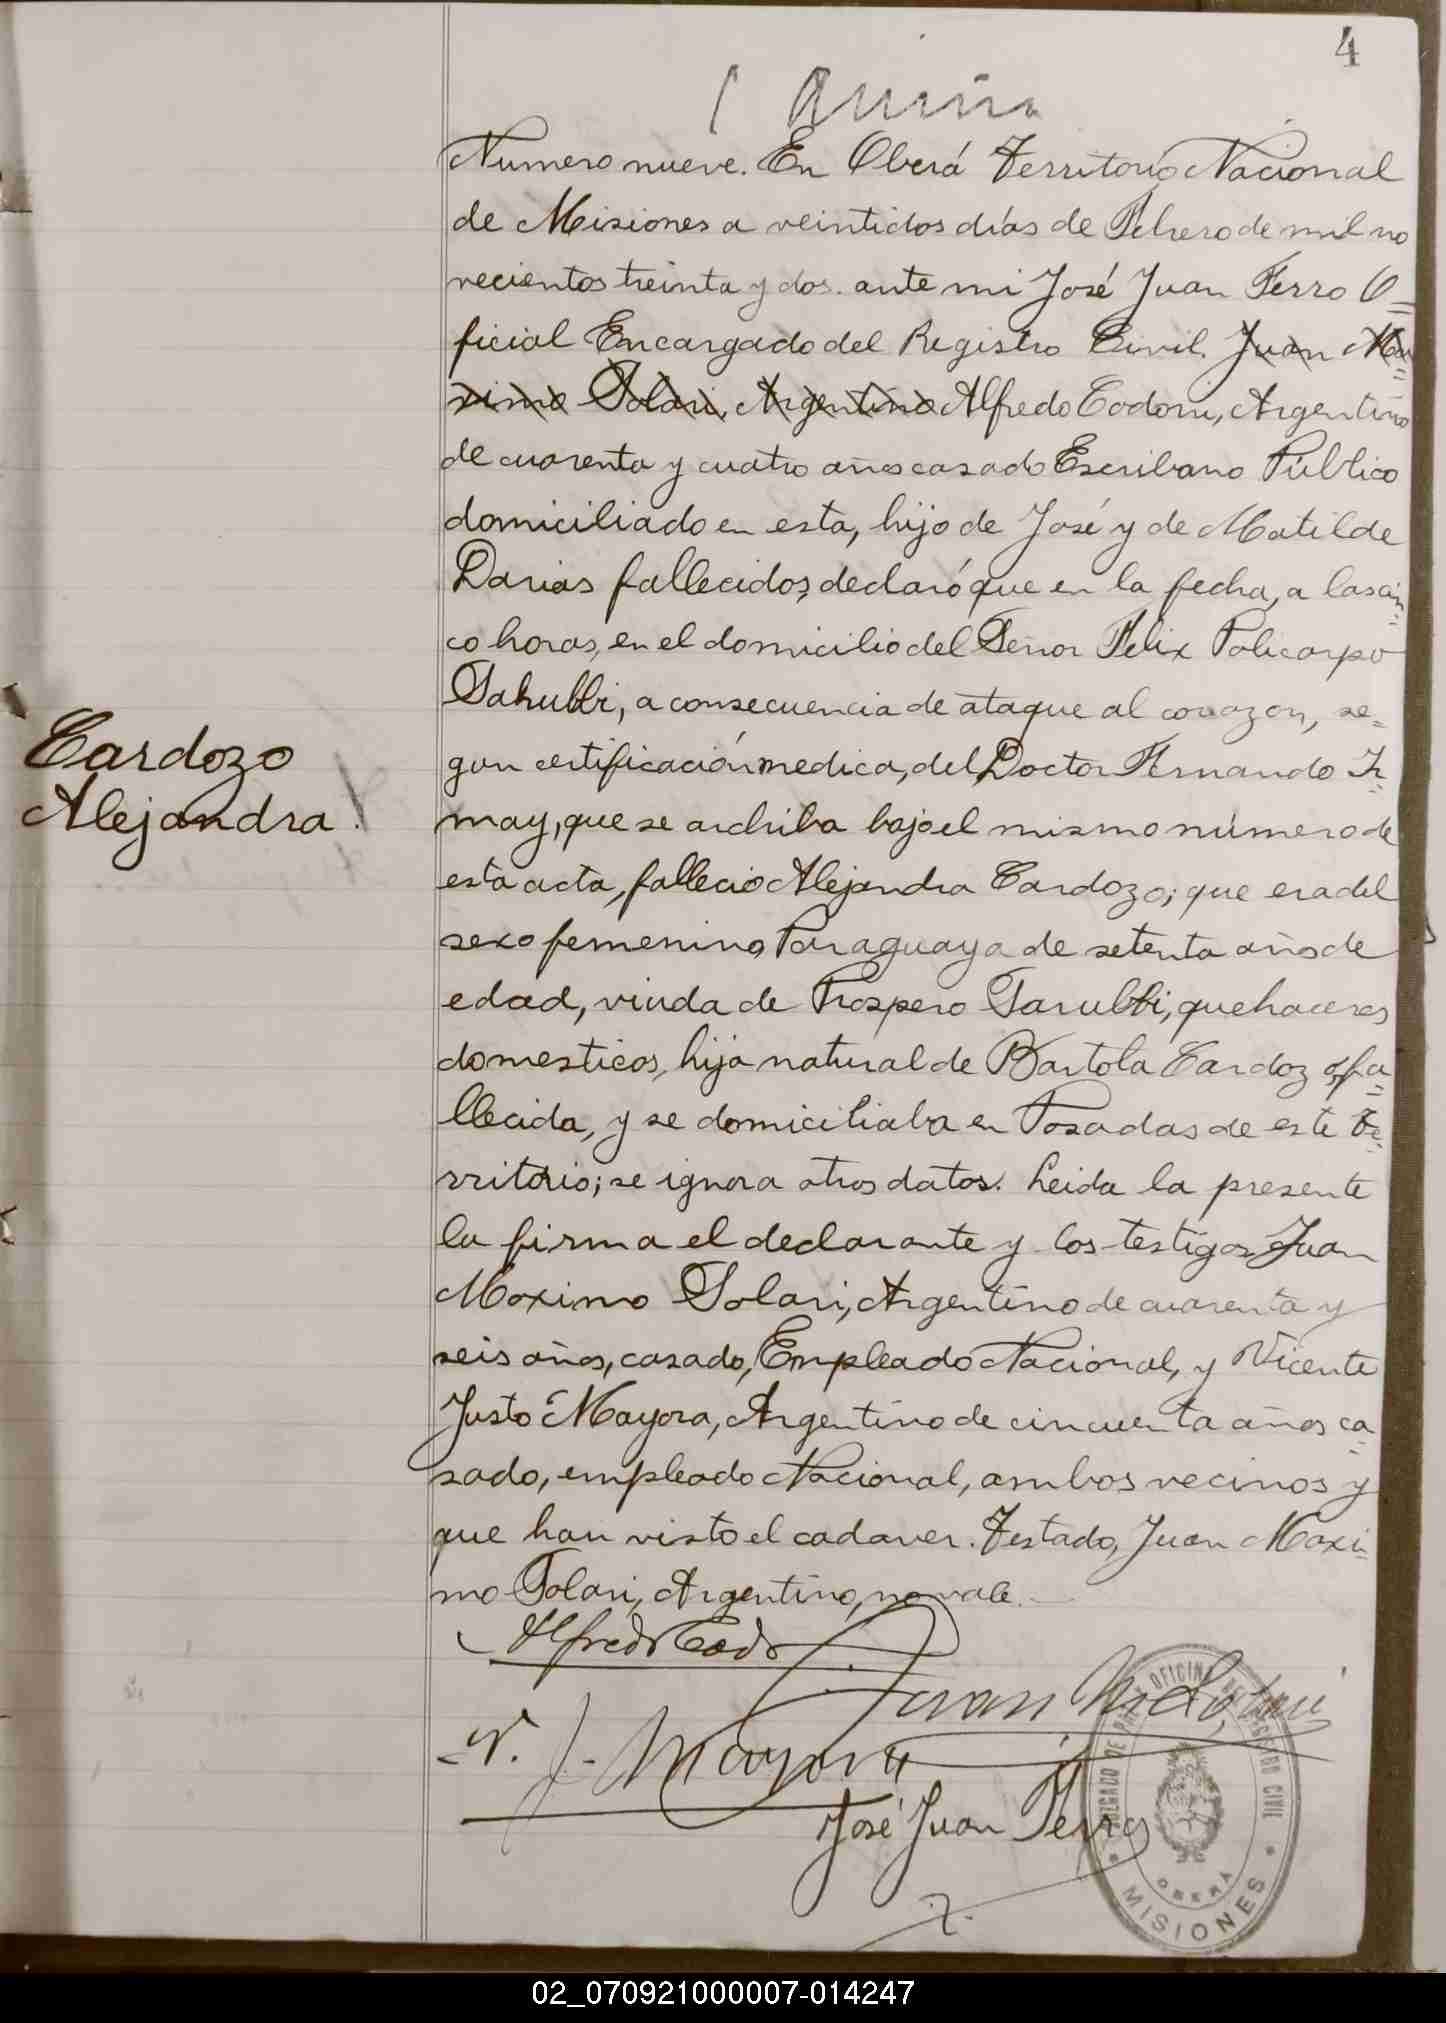 4
Numero nueve. En Oberá Territorio Nacional
de Misiones a veintidos días de Febrero de mil no
vecientos treinta y dos. ante mi José Juan Ferro O=
ficial Encargado del Registro Civil. Juan Ma=
ximo Solari, Argentino Alfredo Codoni, Argentino
de cuarenta y cuatro años casado Escribano Público
domiciliado en esta, hijo de José y de Matilde
Darias fallecidos, declaró que en la fecha, a las cin=
co horas, en el domicilio del Señor Felix Policarpo
Sarubbi, a consecuencia de ataque al corazon, se=
gun certificación medica, del Doctor Fernando
may, que se archiba bajo el mismo número de
Cardozo
Alejandra.
esta acta, fallecio Alejandra Cardozo; que era del
sexo femenino, Paraguaya de setenta años de
edad, viuda de Prospero Sarubbi, quehaceres
domesticos, hija natural de Bartola Cardozo, fa=
llecida, y se domiciliaba en Posadas de este Te=
rritorio; se ignora otros datos. Leida la presente
la firma el declarante y los testigos Juan
Maximo Solari, Argentino de cuarenta y
seis años, casado, Empleado Nacional, y Vicente
Justo Mayora, Argentino de cincuenta años ca=
sado, empleado Nacional, ambos vecinos y
que han visto el cadaver. Testado, Juan Maxi=
mo Solari, Argentino, no vale.
Juan M Solari
V. J. Mayora
José Juan Ferro
JUZGADO DE PAZ Y OFICINA DE REGISTRO CIVIL
OBERÁ
MISIONES
02_070921000007-014247